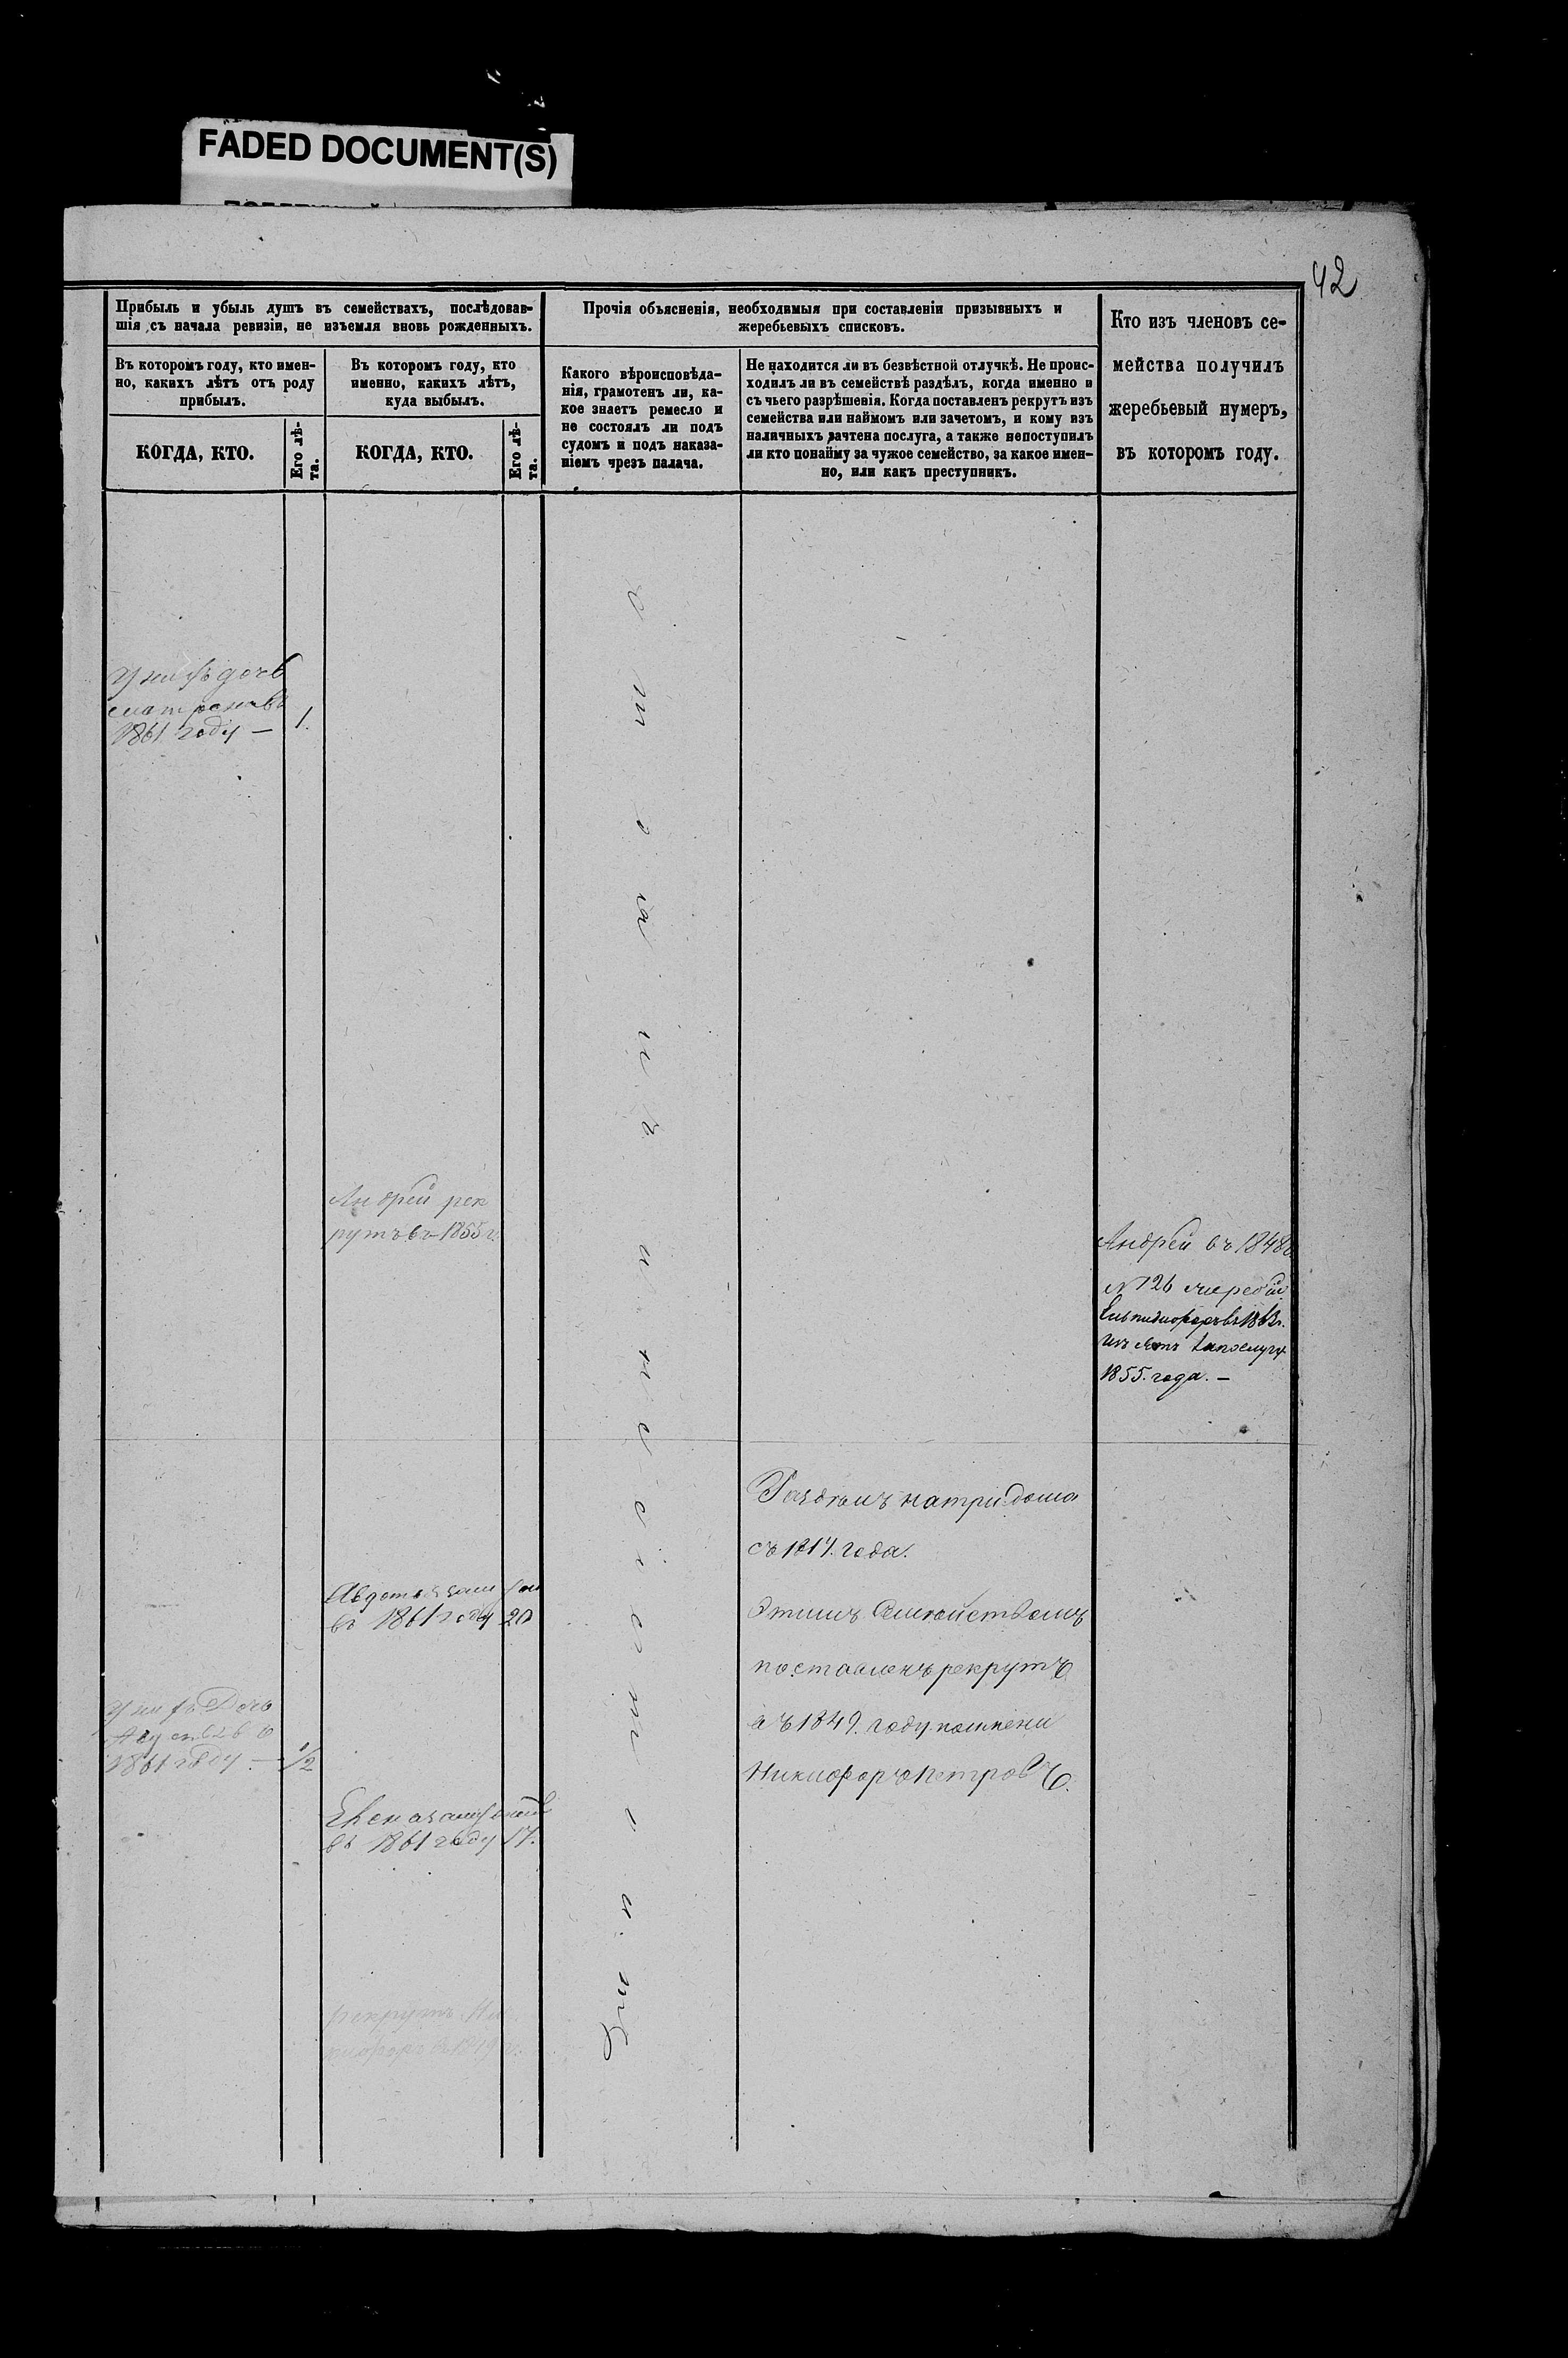 FADED DOCUMENT(S)
42
Прибыль и убыль душъ въ семействахъ, послѣдовав-
шія съ начала ревизіи, не изъемля вновь рожденныхъ.
Въ которомъ году, кто имен-
но, какихъ лѣтъ отъ роду
прибылъ.
КОГДА, КТО.
Его лѣ-
та.
Въ которомъ году, кто
именно, какихъ лѣтъ,
куда выбылъ.
КОГДА, КТО.
Его лѣ-
та.
Прочія объясненія, необходимыя при составленіи призывныхъ и
жеребьевыхъ списковъ.
Какого вѣроисповѣда-
нія, грамотенъ ли, ка-
кое знаетъ ремесло и
не состоялъ ли подъ
судомъ и подъ наказа-
ніемъ чрезъ палача.
Не находится ли въ безвѣстной отлучкѣ. Не проис-
ходилъ ли въ семействѣ раздѣлъ, когда именно и
съ чьего разрѣшенія. Когда поставленъ рекрутъ изъ
семейства или наймомъ или зачетомъ, и кому изъ
наличныхъ зачтена послуга, а также непоступилъ
ли кто понайму за чужое семейство, за какое имен-
но, или какъ преступникъ.
Кто изъ членовъ се-
мейства получилъ
жеребьевый нумеръ,
въ которомъ году.
У нихъ дочь
1861 году — 1.
Андрей рек
рутъ въ 1855 г.
Андрей въ 1848
№ 126
въ 1863 г.
1855. года. —
Разделъ на три дома
съ 1817. года.
въ 1861 году 20
Этимъ Семействомъ
поставленъ рекрутъ
въ 1849. году
Никифоръ Петровъ.
У нихъ Дочь
1861 году — 1/2
въ 1861 году 17.
рекрутъ Ни
кифоръ въ